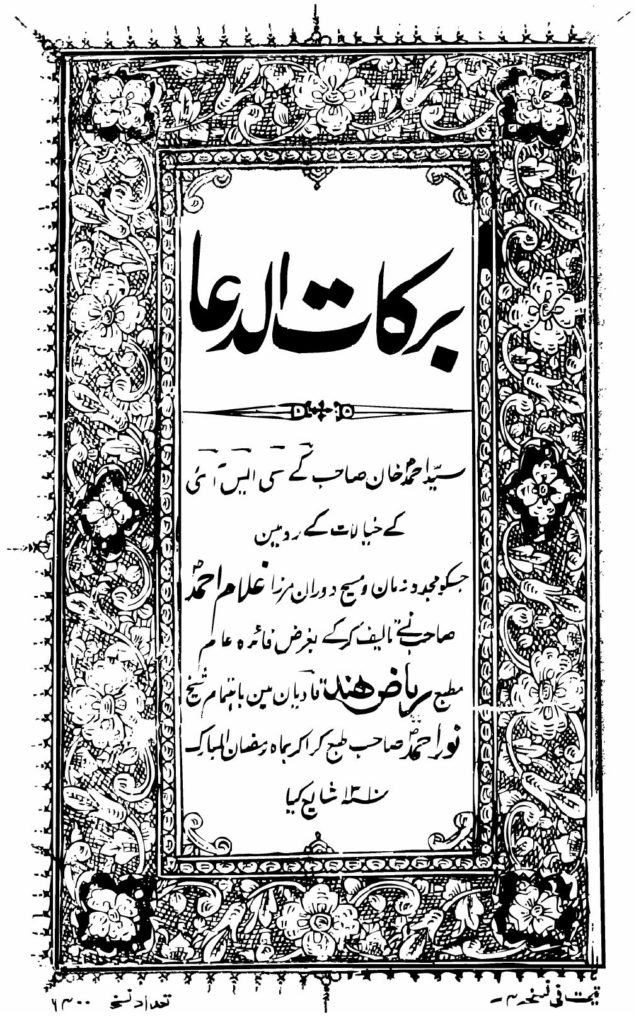 برکات الدعا
سیّد احمد خان صاحب کے سی ایس آئی
کے خیالات کے رد مین
جسکو مجدد زمان ومسیح دوران مرزا غلام احمد
صاحب نے تالیف کر کے بغرض فائدہ عام
مطبع ریاض ہند قادیان مین باہتمام شیخ
نور احمد صاحب طبع کرا کر بماہ رمضان المبارک
۱۳۱۰ شایع کیا
قیمت فی نسخہ
تعداد نسخہ